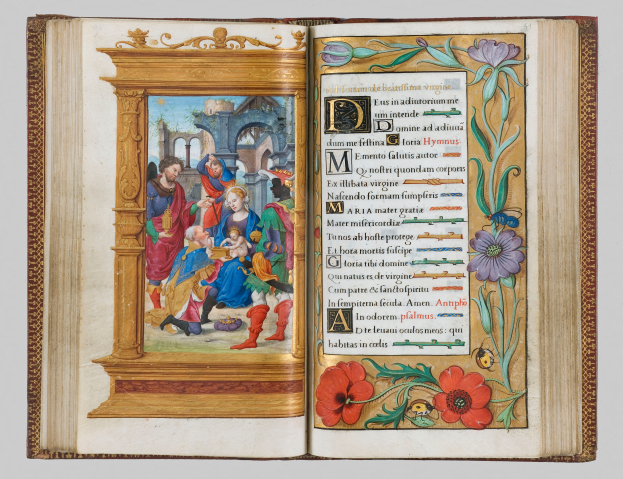 de beatissima virgine
Deus in adiutorium me
um intende
Domine ad adiuuā
dum me festina Gloria Hymnus
Memento salutis autor
Qꝫ nostri quondam corporis
Ex illibata virgine
Nascendo formam sumpseris
MARIA mater gratiæ
Mater misericordiæ
Tu nos ab hoste protege
Et hora mortis suscipe
Gloria tibi domine
Qui natus es de virgine
Cum patre & sancto spiritu
In sempiterna secula. Amen. Antiphō
In odorem psalmus
AD te leuaui oculos meos: qui
habitas in cœlis